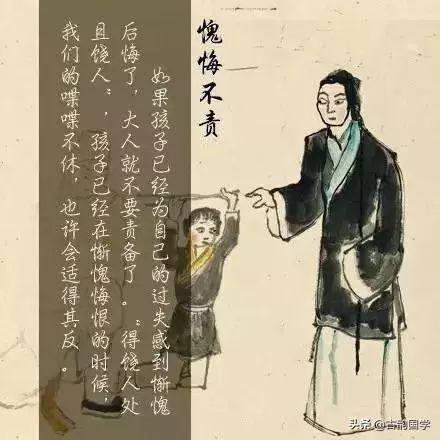 愧悔不责
如果孩子已经为自己的过失感到惭愧
后悔了，大人就不要责备了。“得饶人处
且饶人”，孩子已经在惭愧悔恨的时候，
我们的喋喋不休，也许会适得其反。
头条@古韵国学